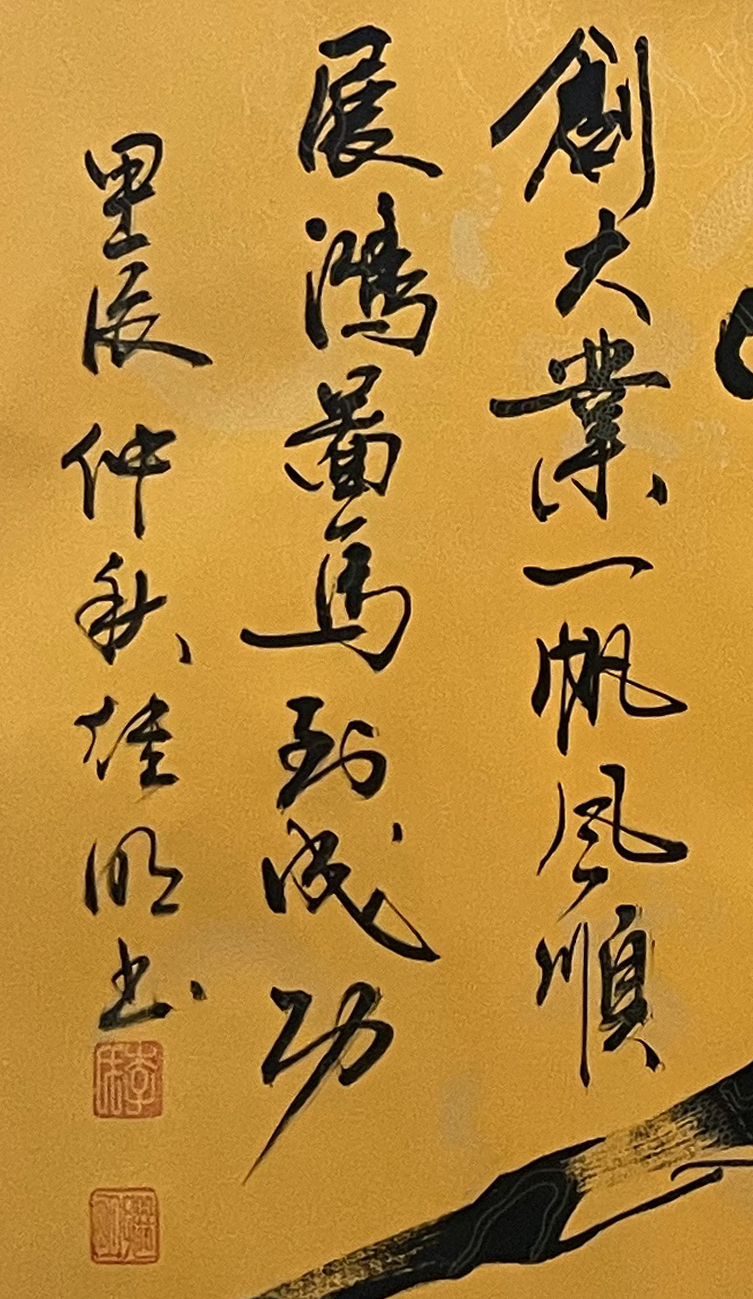 創大業一帆風順
展鴻圖馬到成功
辰仲秋明书